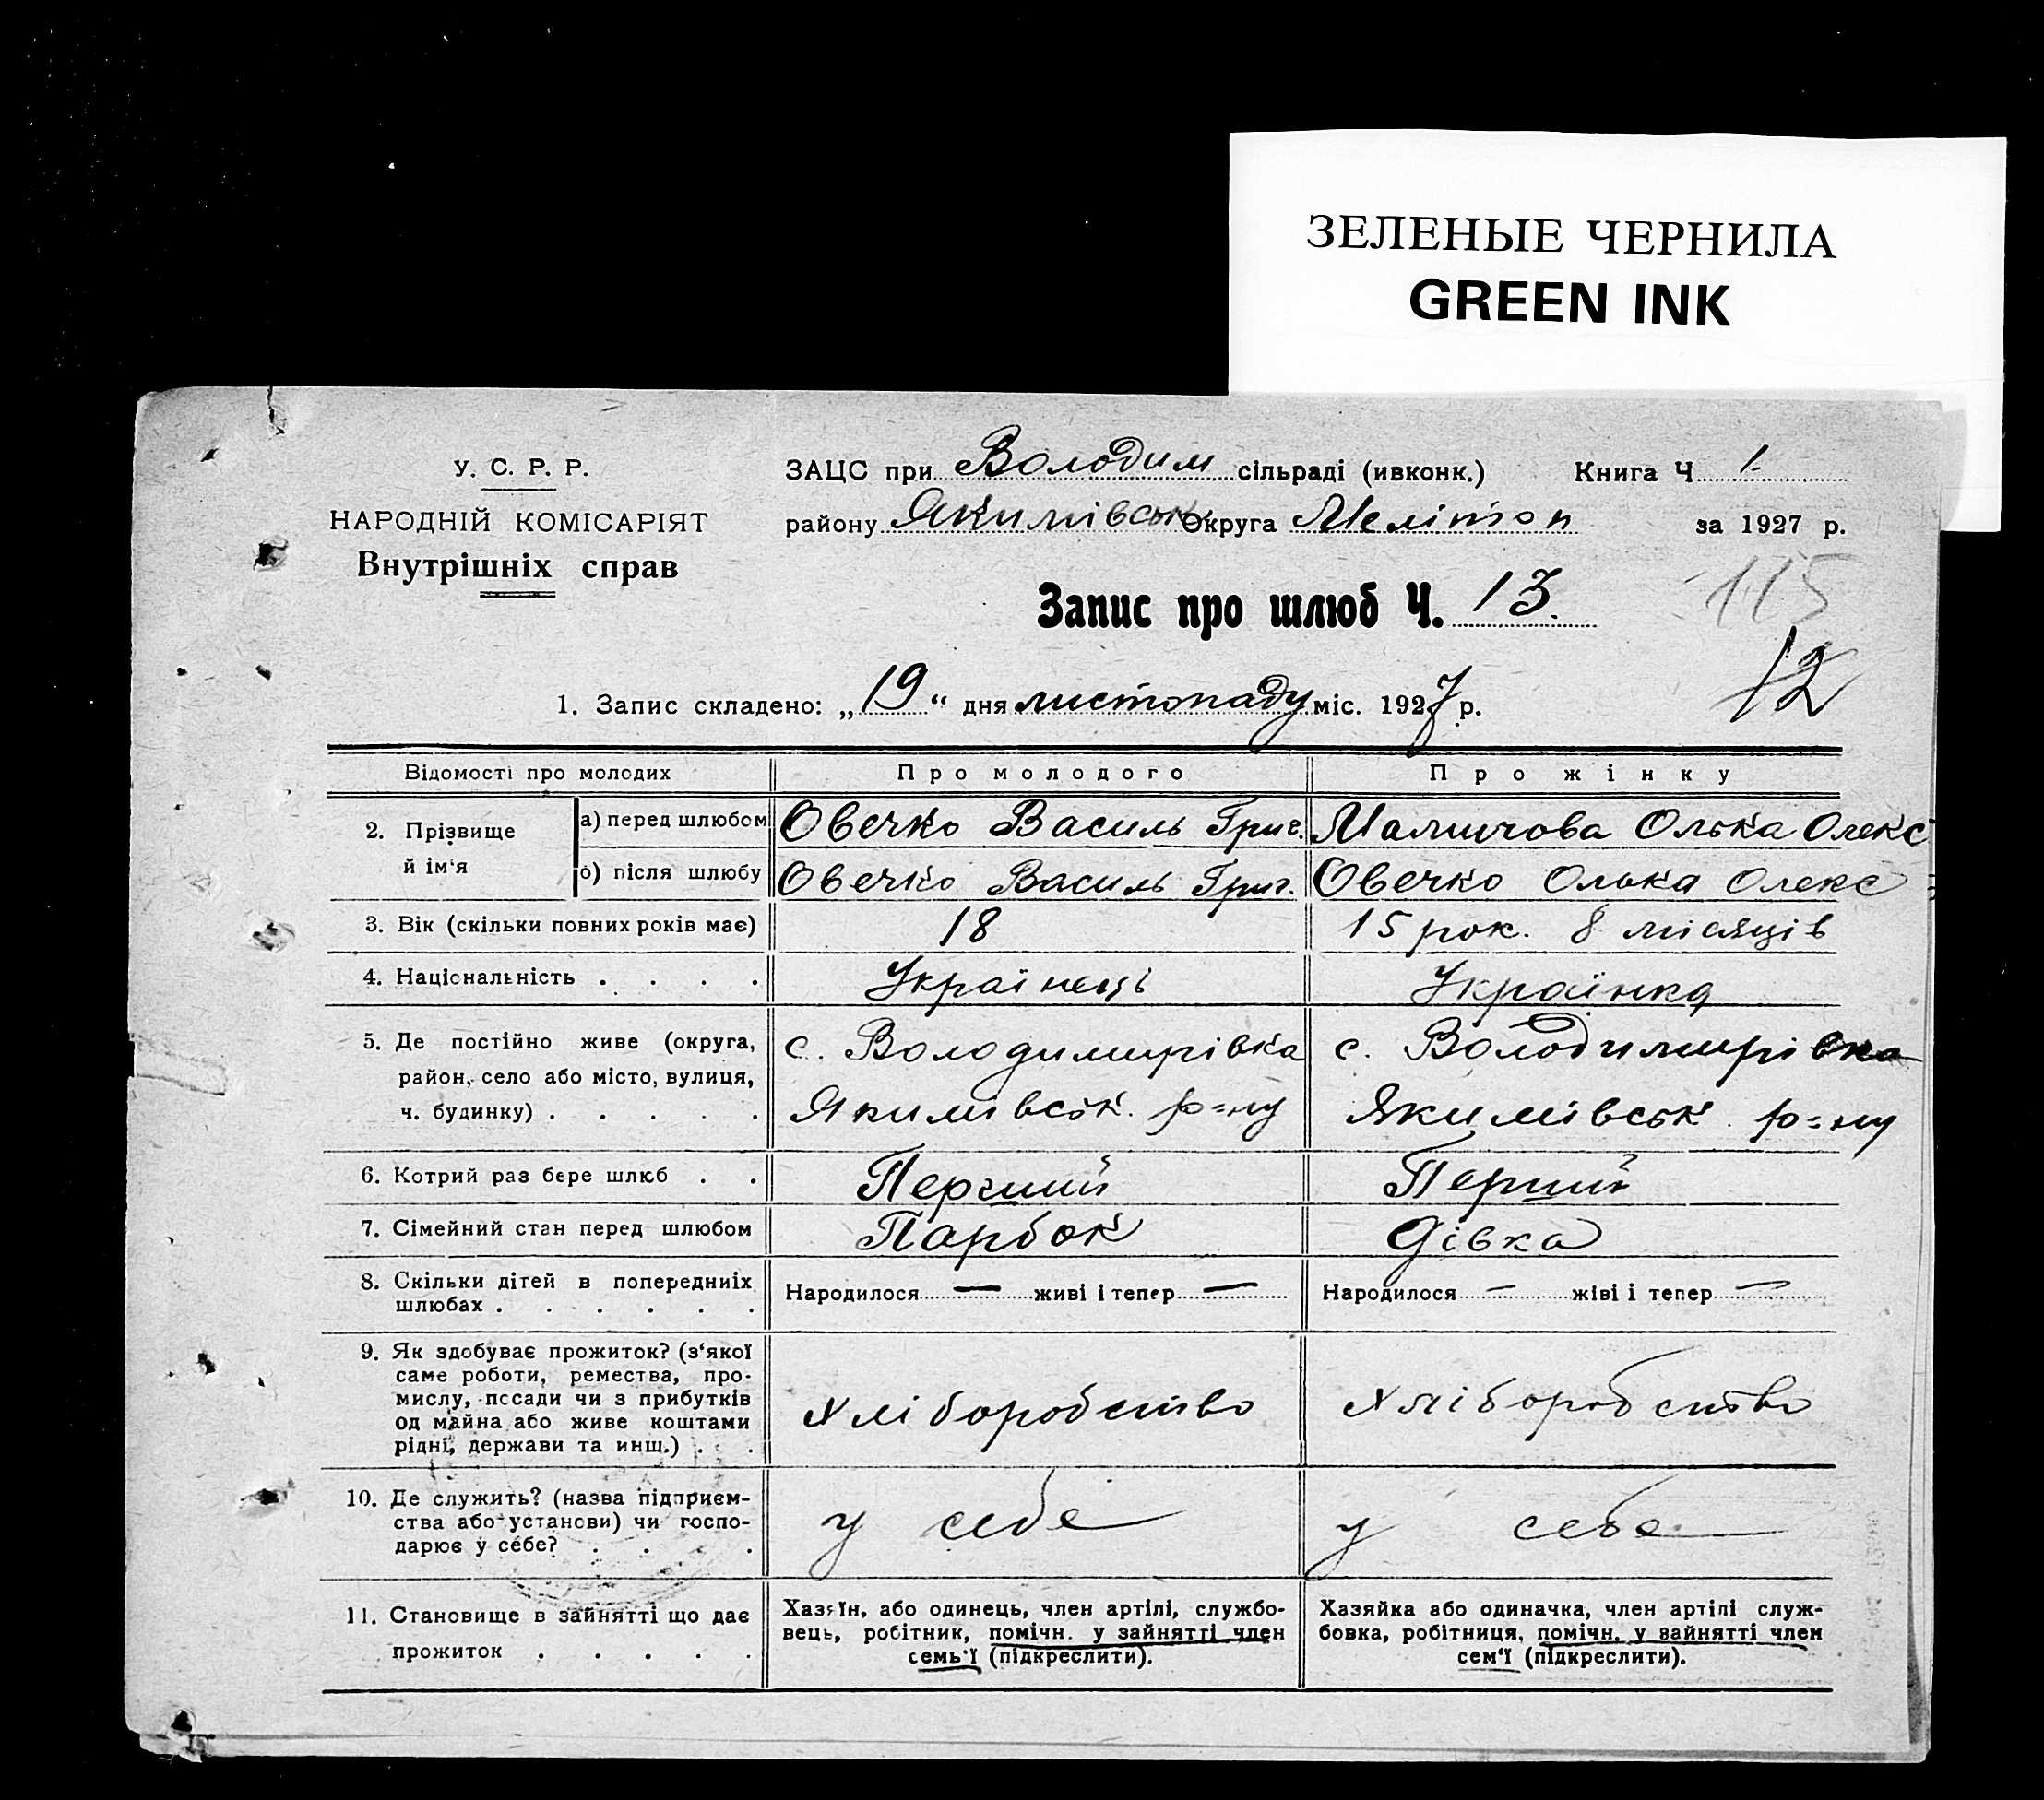 ЗЕЛЕНЫЕ ЧЕРНИЛА
GREEN INK
У. С. Р. Р.
НАРОДНІЙ КОМІСАРІЯТ
Внутрішніх справ
ЗАЦС при Володим сільраді (ивконк.) Книга Ч 1.
району Якимівськ Округа Мелітоп за 1927 р.
Запис про шлюб Ч. 13.
115
12
1. Запис складено: „19“ дня листопаду міс. 1927 р.
Відомості про молодих Про молодого Про жінку
2. Прізвище й ім'я
а) перед шлюбом Овечко Василь Григ. Мамичова Олька Олекс
б) після шлюбу Овечко Василь Григ. Овечко Олька Олекс
3. Вік (скільки повних років має) 18 15 рок. 8 місяців
4. Національність . . . . Українець Українка
5. Де постійно живе (округа, с. Володимирівка с. Володимирівка
район, село або місто, вулиця,
ч. будинку) . . . . . Якимівськ. р=ну Якимівськ. р=ну
6. Котрий раз бере шлюб . . Перший Перший
7. Сімейний стан перед шлюбом Парбок Дівка
8. Скільки дітей в попередниіх Народилося — живі і тепер — Народилося — жіві і тепер —
шлюбах . . . . . .
9. Як здобуває прожиток? (з'якої
саме роботи, ремества, про-
мислу, посади чи з прибутків
од майна або живе коштами
рідні, держави та инш.) . . Хліборобство Хліборобство
10. Де служить? (назва підприєм-
ства або установи) чи госпо-
дарює у себе? . . . у себе у себе
11. Становище в зайнятті що дає
прожиток . . . . .
Хазяїн, або одинець, член артілі, службо-
вець, робітник, помічн. у зайнятті член
семь'ї (підкреслити).
Хазяйка або одиначка, член артілі служ-
бовка, робітниця, помічн. у зайнятті член
сем'ї (підкреслити).